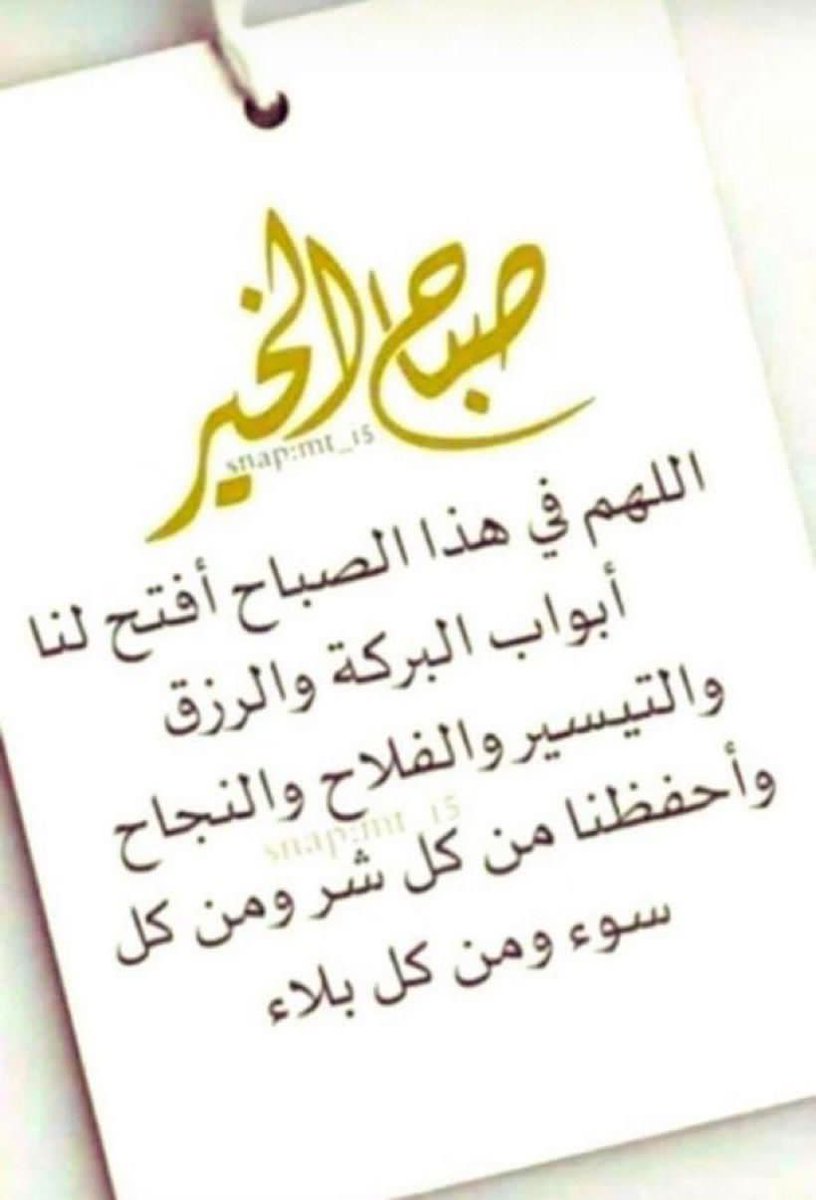 صباح الخير
snap:mt_i5
اللهم في هذا الصباح أفتح لنا
أبواب البركة والرزق
والتيسير والفلاح والنجاح
snap:mt_i5
وأحفظنا من كل شر ومن كل
سوء ومن كل بلاء